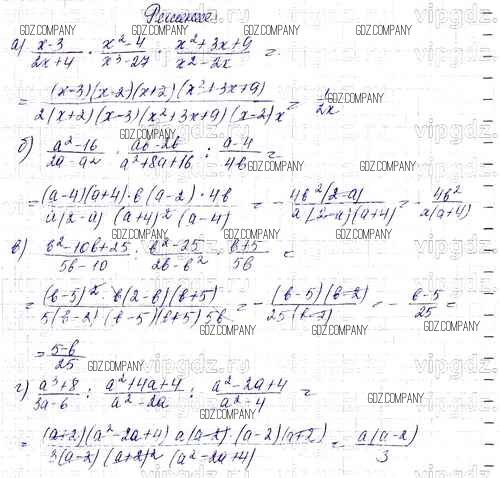 Решение
а) (x-3)/(2x+4) · (x²-4)/(x³-27) · (x²+3x+9)/(x²-2x) =
= ((x-3)(x-2)(x+2)(x²+3x+9))/(2(x+2)(x-3)(x²+3x+9)(x-2)x) = 1/(2x)
б) (a²-16)/(2a-a²) · (ab-2b)/(a²+8a+16) : (a-4)/(4b) =
= ((a-4)(a+4)·b(a-2)·4b)/(a(2-a)(a+4)²(a-4)) = -(4b²(2-a))/(a(2-a)(a+4)) = -(4b²)/(a(a+4))
в) (b²-10b+25)/(5b-10) : (b²-25)/(2b-b²) · (b+5)/(5b) =
= ((b-5)²·b(2-b)(b+5))/(5(b-2)(b-5)(b+5)5b) = -((b-5)(b-2))/(25(b-2)) = -(b-5)/25 =
= (5-b)/25
г) (a³+8)/(3a-6) : (a²+4a+4)/(a²-2a) : (a²-2a+4)/(a²-4) =
= ((a+2)(a²-2a+4)a(a-2)·(a-2)(a+2))/(3(a-2)(a+2)²(a²-2a+4)) = (a(a-2))/3
GDZ.COMPANY
vipgdz.ru